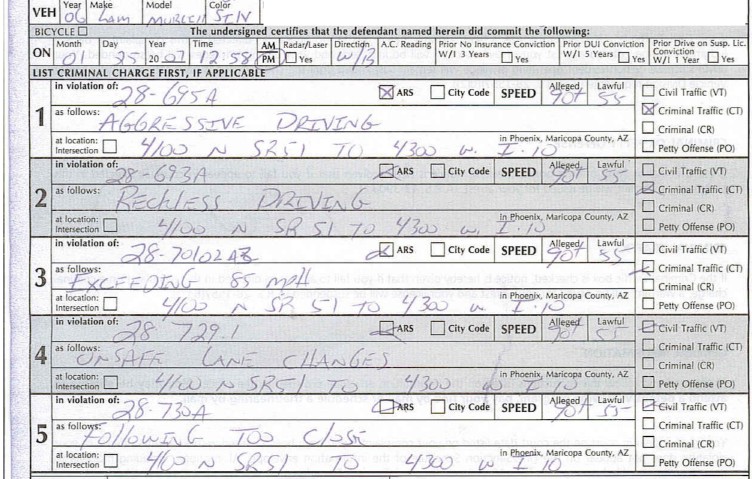 VEH Year 06 Make Lam Model MURCELI Color SILV
BICYCLE The undersigned certifies that the defendant named herein did commit the following:
ON Month 01 Day 25 Year 2007 Time 12:58 AM PM Radar/Laser Yes Direction W/B A.C. Reading Prior No Insurance Conviction W/I 3 Years Yes Prior DUI Conviction W/I 5 Years Yes Prior Drive on Susp. Lic. Conviction W/I 1 Year Yes
LIST CRIMINAL CHARGE FIRST, IF APPLICABLE
1 in violation of: 28-695A ARS City Code SPEED Alleged 90+ Lawful 55 Civil Traffic (VT)
as follows: AGGRESSIVE DRIVING Criminal Traffic (CT)
Criminal (CR)
at location: Intersection 4100 N SR51 TO 4300 W. I-10 in Phoenix, Maricopa County, AZ Petty Offense (PO)
2 in violation of: 28-693A ARS City Code SPEED Alleged 90+ Lawful 55 Civil Traffic (VT)
as follows: RECKLESS DRIVING Criminal Traffic (CT)
Criminal (CR)
at location: Intersection 4100 N SR 51 TO 4300 W. I-10 in Phoenix, Maricopa County, AZ Petty Offense (PO)
3 in violation of: ARS City Code SPEED Alleged 90+ Lawful 55 Civil Traffic (VT)
as follows: EXCEEDING 85 mpH Criminal Traffic (CT)
Criminal (CR)
at location: Intersection 4100 N SR 51 TO 4300 W I-10 in Phoenix, Maricopa County, AZ Petty Offense (PO)
4 in violation of: 28-729.1 ARS City Code SPEED Alleged 90+ Lawful 55 Civil Traffic (VT)
as follows: UNSAFE LANE CHANGES Criminal Traffic (CT)
Criminal (CR)
at location: Intersection 4100 N SR51 TO 4300 W I-10 in Phoenix, Maricopa County, AZ Petty Offense (PO)
5 in violation of: 28-730A ARS City Code SPEED Alleged 90+ Lawful 55 Civil Traffic (VT)
as follows: FOllOWING TOO ClOSE Criminal Traffic (CT)
Criminal (CR)
at location: Intersection 4100 N SR51 TO 4300 W I-10 in Phoenix, Maricopa County, AZ Petty Offense (PO)